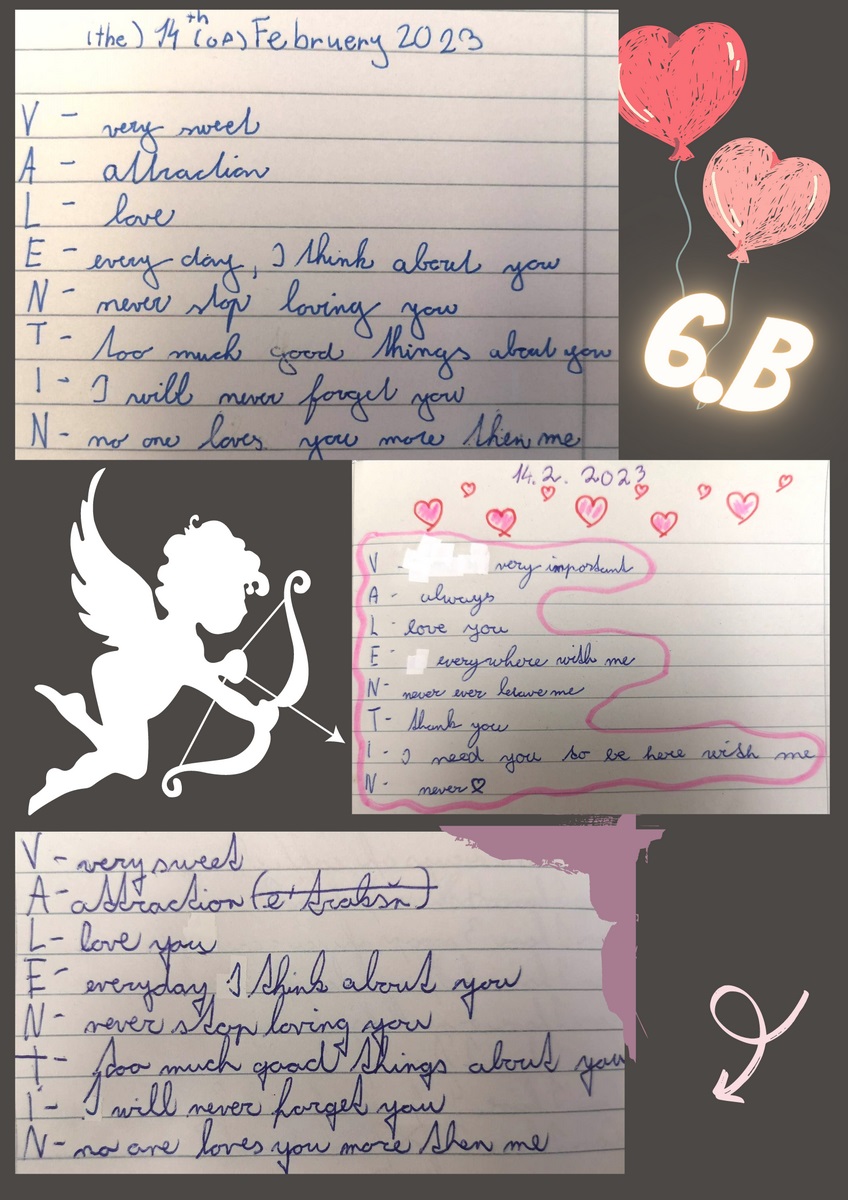 (the) 14th (of) Februery 2023
V - very sweet
A - attraction
L - love
E - every day, I think about you
N - never stop loving you
T - too much good things about you
I - I will never forget you
N - no one loves you more then me
6.B
14.2. 2023
V - very important
A - always
L - love you
E - everywhere with me
N - never ever leave me
T - thank you
I - I need you to be here with me
N - never
V - very sweet
A - attraction
L - love you
E - everyday I think about you
N - never stop loving you
T - too much good things about you
I - I will never forget you
N - no one loves you more then me